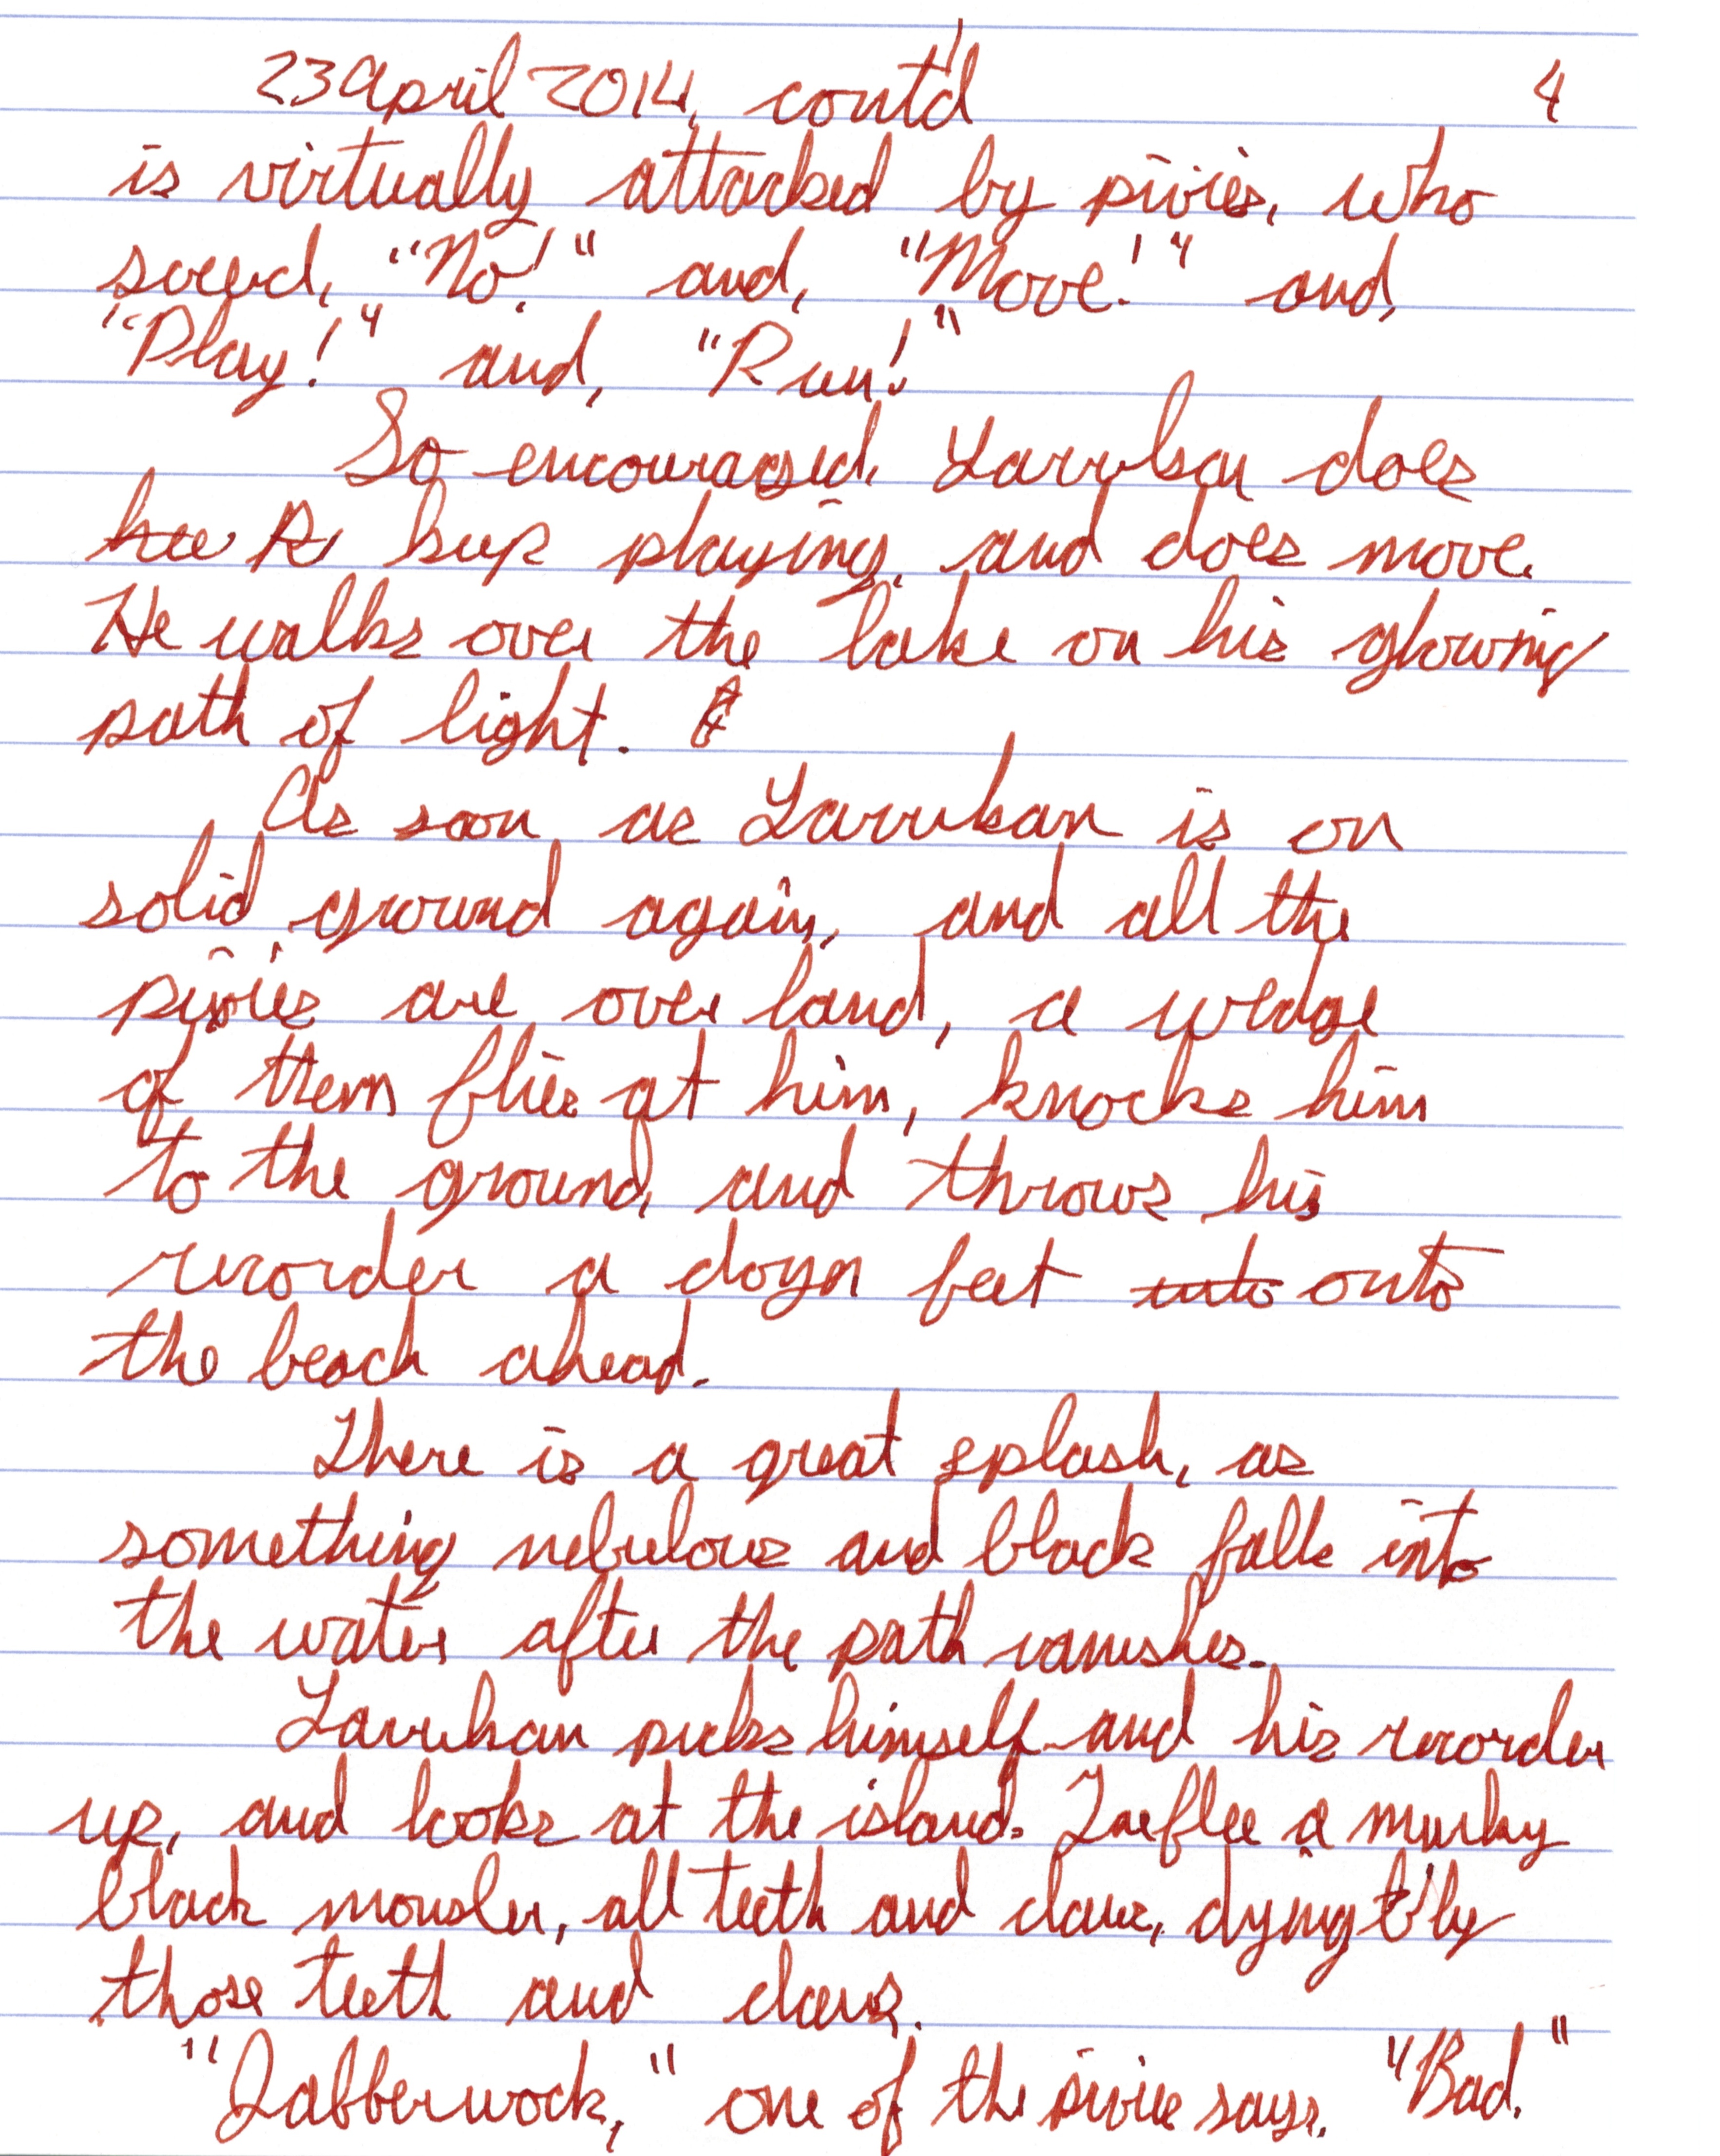 23 April 2014, cont'd 4
is virtually attacked by pixies, who
"No!" and, "Move!" and,
"Play!" and, "Run!"
So encouraged, Larrikan does
keep playing, and does move.
He walks over the lake on his glowing
path of light.
As soon as Larrikan is on
solid ground again, and all the
pixies are over land, a wedge
of them flies at him, knocks him
to the ground, and throws his
recorder a dozen feet into onto
the beach ahead.
There is a great splash, as
something nebulous and black falls into
the water after the path vanishes.
Larrikan picks himself and his recorder
up, and looks at the island. a murky
black monster, all teeth and claws, dying by
those teeth and claws.
"Jabberwock," one of the pixies says. "Bad."